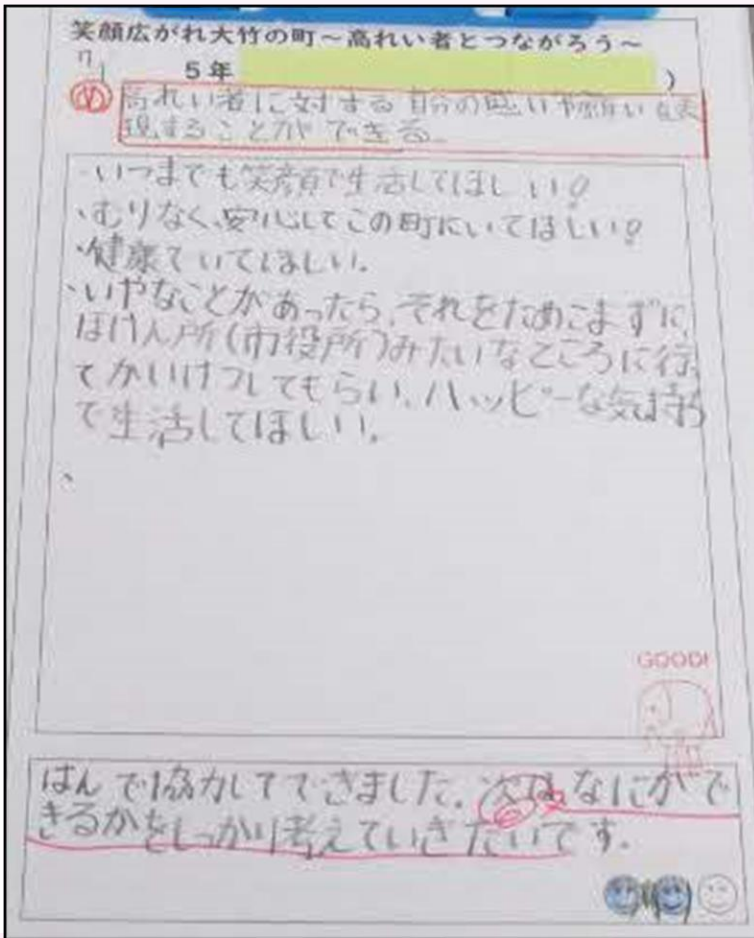 笑顔広がれ大竹の町～高れい者とつながろう～
5年 )
め 高れい者に対する自分の思いや願いを表
現することができる。
・いつまでも笑顔で生活してほしい!
・むりなく、安心してこの町にいてほしい!
・健康でいてほしい。
・いやなことがあったら、それをためこまずに、
ほけん所(市役所)みたいなところに行っ
てかいけつしてもらい、ハッピーな気持ち
で生活してほしい。
、
GOOD!
はんで協力してできました。次はなにがで
きるかをしっかり考えていきたいです。